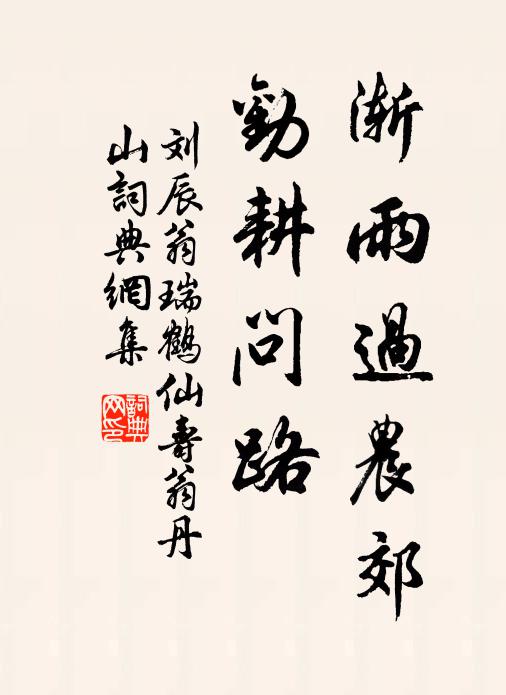 渐雨過農郊
勸耕問路
刘辰翁瑞鶴仙壽翁丹
山詞典網集
詞典网印